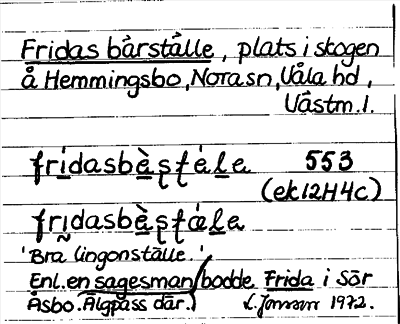 Fridas bärställe, plats i skogen
å Hemmingsbo, Nora sn, Våla hd,
Västm. l.
fri̱dasbɛ̀ʂʈɛ́le 553
(ek 12H4c)
frɩ̱dasbɛ̀ʂʈæ̀le
'Bra lingonställe.'
Enl. en sagesman bodde Frida i Sör
Åsbo. Älgpass där. L. Jonsson 1972.